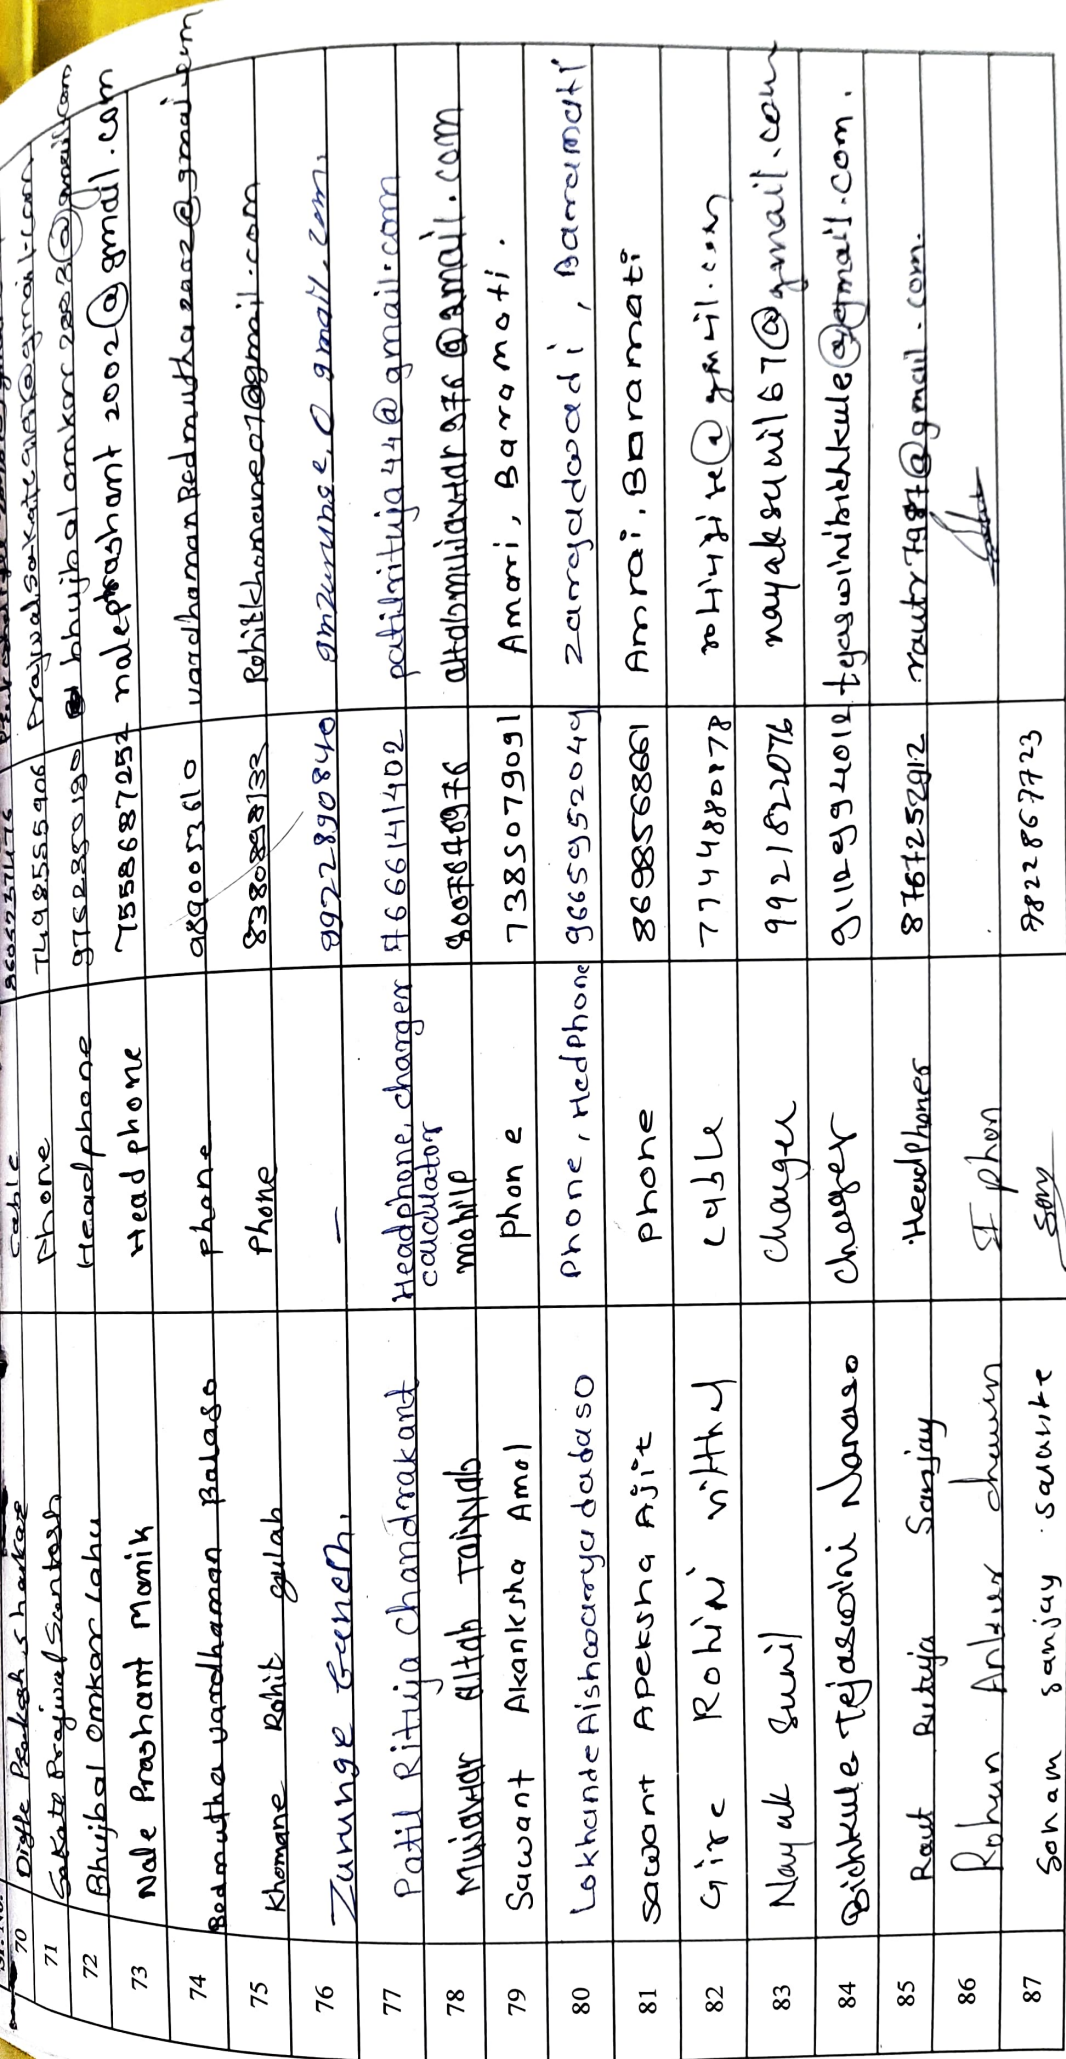 70 Digte Prakash shankar cable
71 Sakate Prajwal Santosh phone 7498555906 prajwalsakate
72 Bhujbal Omkar Lahu Headphone 9762850190 bhujbalomkar2003@gmail.com
73 Nale Prashant Manik Headphone 7558687252 naleprashant2002@gmail.com
74 Bedmutha vardhaman Balaso phone 9890053610 vardhamanBedmutha2002@gmail.com
75 Khomane Rohit gulab Phone 8380898132 Rohitkhomane07@gmail.com
76 Zurunge Ganesh. — 9922890840 gmzurunge.0gmail.com.
77 Patil Rituja Chandrakant Headphone, charger 7666141402 patilrituja44@gmail.com
calculator
78 Mujawar Altab Taiyyab mobile
79 Sawant Akanksha Amol phone 7385079091 Amori, Baramati.
80 Lokhande Aishwarya dadaso Phone, HedPhone 9665952049 zaragadwadi, Baramati
81 sawant APEKSHA Ajit phone 8698568661 Amrai, Baramati
82 Gire Rohini vitthal cable 7744880178 rohigire@gmail.com
83 Nayak Sunil Charger 9921822076 nayaksunil67@gmail.com
84 Bichkule Tejaswini Nanaso Charger tejaswinibichkule@gmail.com.
85 Raut Rutuja Sanjay Headphones 8767252912 rautr7987@gmail.com.
86 Rohan Ankur chavan I phon
87 Sonam sanjay salunke Sony 9822867723